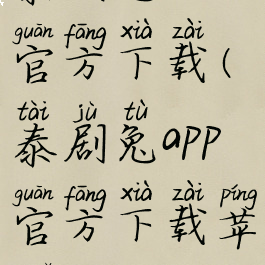 guān fāng xià zài
官方下载(
tài jù tù
泰剧兔app
guān fāng xià zài píng
官方下载苹